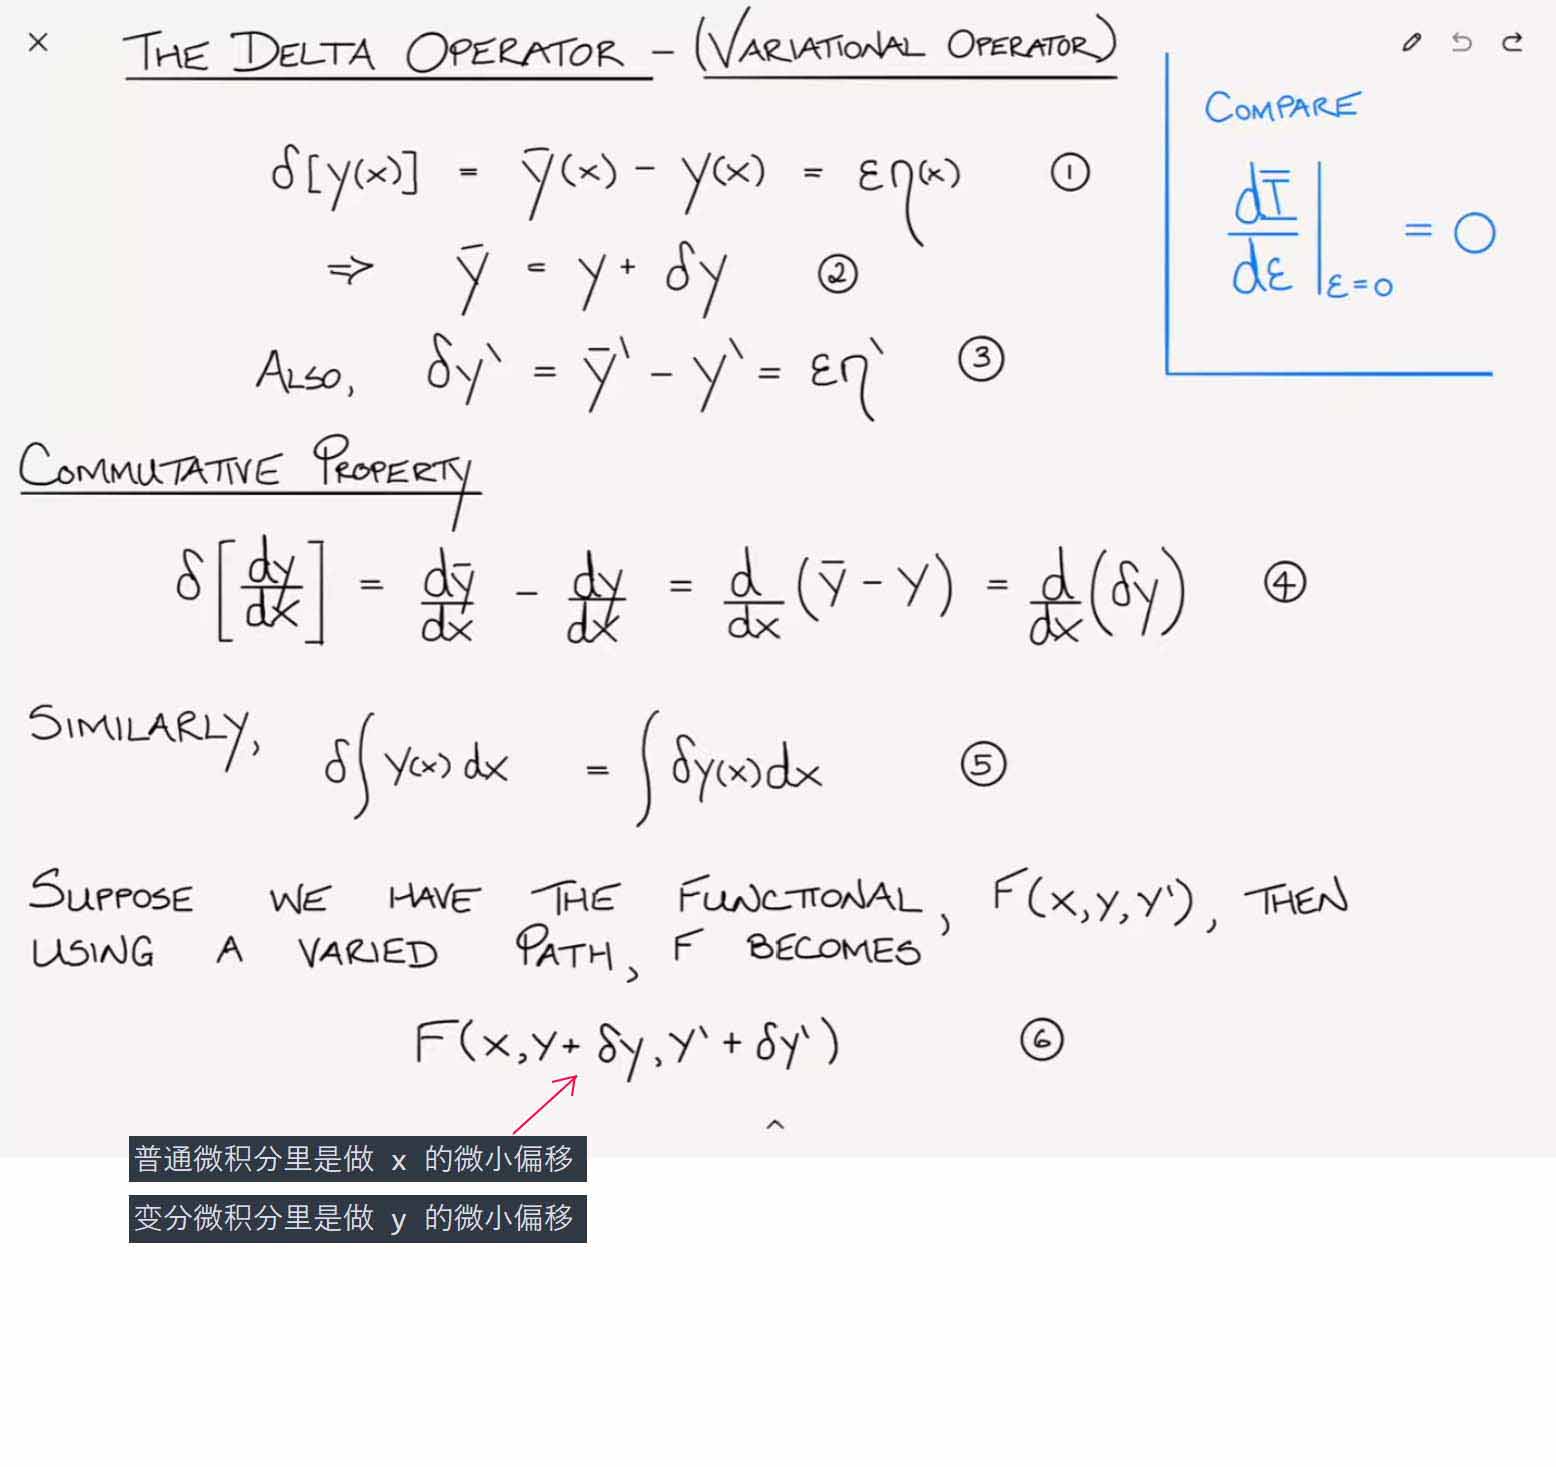 THE DELTA OPERATOR - (VARIATIONAL OPERATOR)
δ[y(x)] = ȳ(x) - y(x) = εη(x) ①
⇒ ȳ = y + δy ②
ALSO, δy` = ȳ` - y` = εη` ③
COMPARE
dĪ/dε |ε=0 = 0
COMMUTATIVE PROPERTY
δ[dy/dx] = dȳ/dx - dy/dx = d/dx (ȳ - y) = d/dx (δy) ④
SIMILARLY, δ∫ y(x) dx = ∫ δy(x) dx ⑤
SUPPOSE WE HAVE THE FUNCTIONAL, F(x, y, y'), THEN
USING A VARIED PATH, F BECOMES
F(x, y + δy, y` + δy`) ⑥
普通微积分里是做 x 的微小偏移
变分微积分里是做 y 的微小偏移